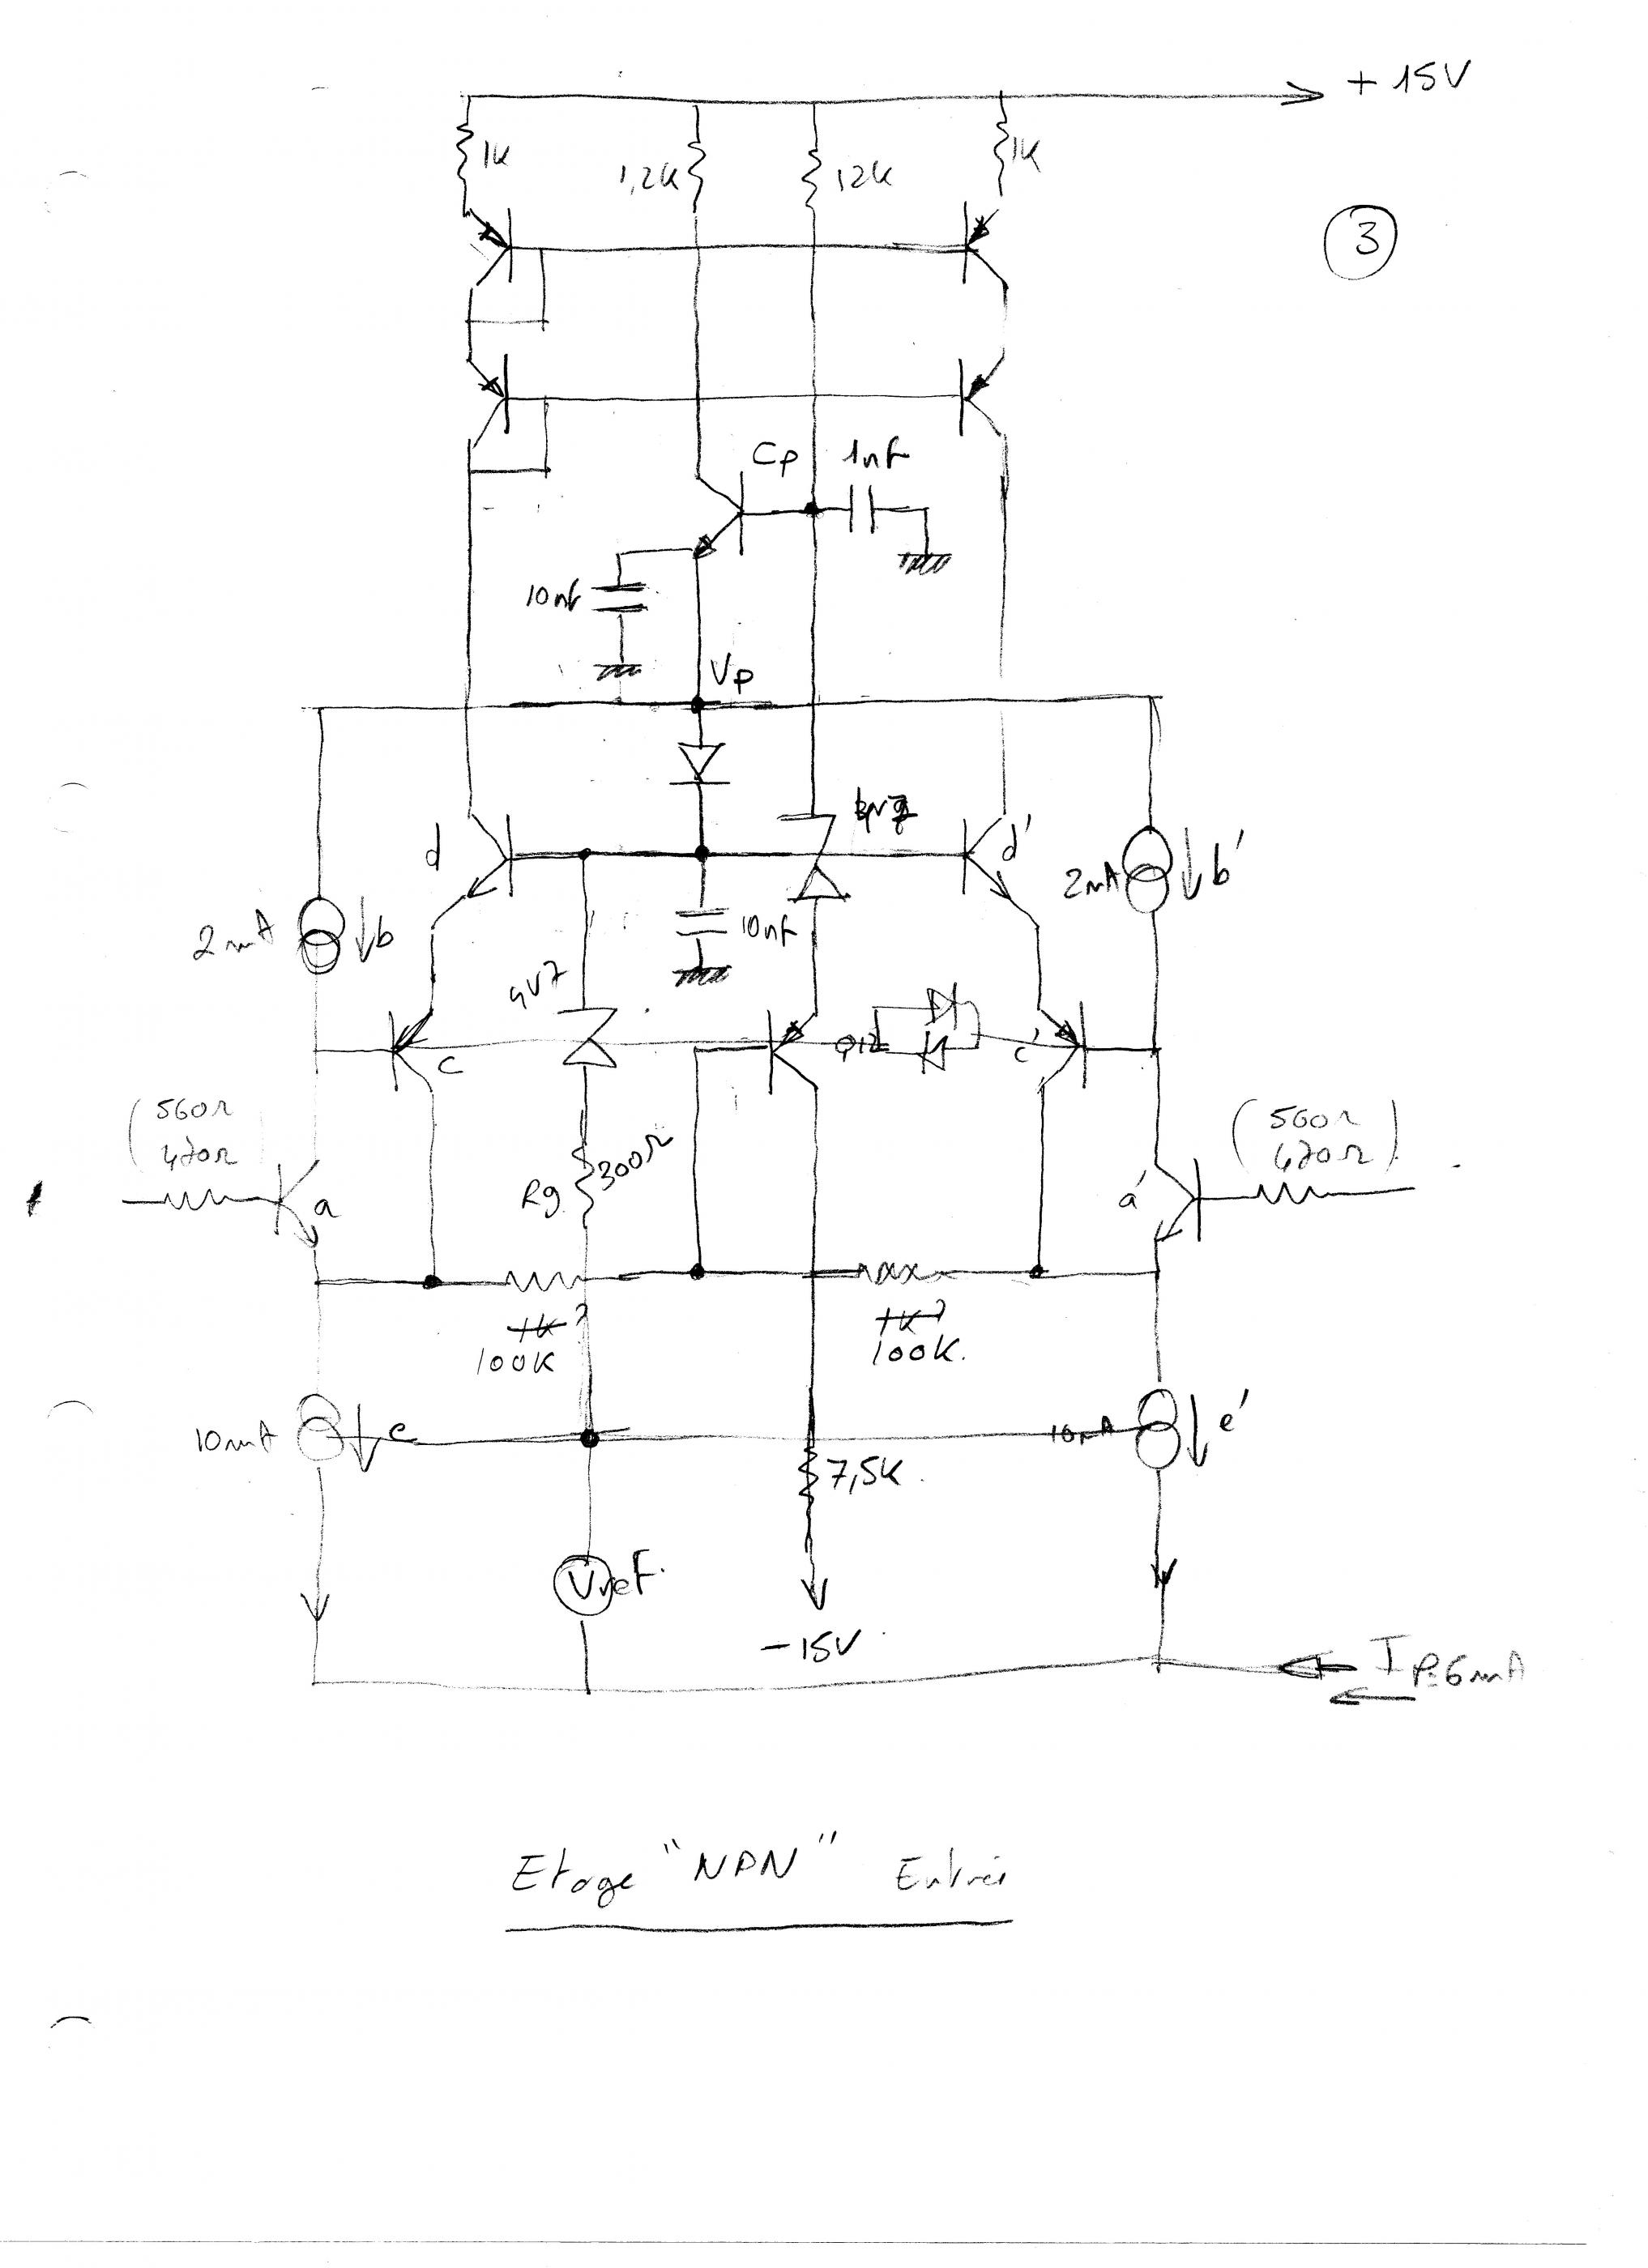 + 15V
1K
1,2K
12K
1K
3
Cp
1nF
10nF
Vp
d
d'
2mA
b'
2mA
b
10nF
4V7
c
c'
(560Ω
470Ω
(560Ω
470Ω)
Rg
300Ω
a
a'
1K?
100K
1K?
100K.
10mA
e
10mA
e'
7,5K.
Vref.
-15V
I P=6mA
Etage "NPN" Entrée